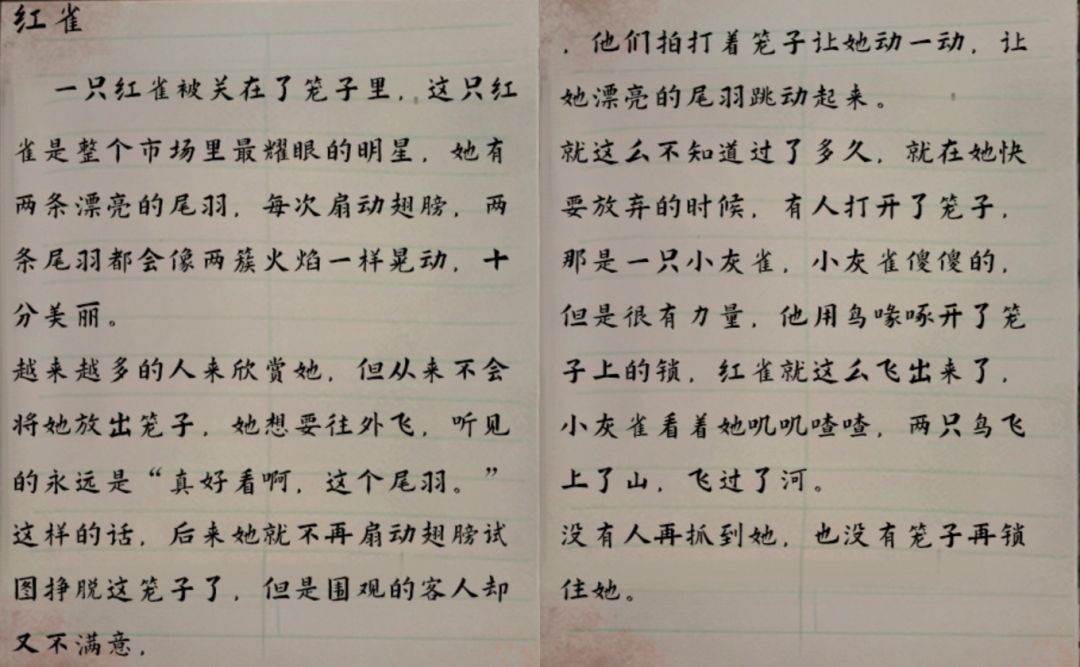 红雀
一只红雀被关在了笼子里，这只红
雀是整个市场里最耀眼的明星，她有
两条漂亮的尾羽，每次扇动翅膀，两
条尾羽都会像两簇火焰一样晃动，十
分美丽。
越来越多的人来欣赏她，但从来不会
将她放出笼子，她想要往外飞，听见
的永远是“真好看啊，这个尾羽。”
这样的话，后来她就不再扇动翅膀试
图挣脱这笼子了，但是围观的客人却
又不满意，
，他们拍打着笼子让她动一动，让
她漂亮的尾羽跳动起来。
就这么不知道过了多久，就在她快
要放弃的时候，有人打开了笼子，
那是一只小灰雀，小灰雀傻傻的，
但是很有力量，他用鸟喙啄开了笼
子上的锁，红雀就这么飞出来了，
小灰雀看着她叽叽喳喳，两只鸟飞
上了山，飞过了河。
没有人再抓到她，也没有笼子再锁
住她。